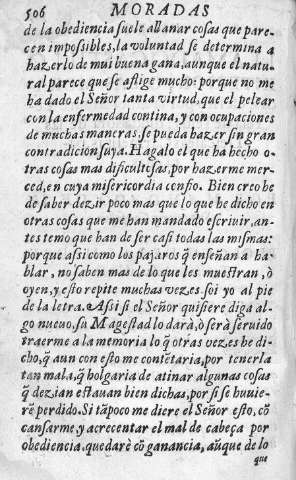 506 MORADAS
de la obediencia suele allanar cosas que pare-
cen impossibles, la voluntad se determina a
hazerlo de mui buena gana, aunque el natu-
ral parece que se aflige mucho: porque no me
ha dado el Señor tanta virtud, que el pelear
con la enfermedad contina, y con ocupaciones
de muchas maneras, se pueda hazer sin gran
contradicion suya. Hagalo el que ha hecho o-
tras cosas mas dificultosas, por hazerme mer-
ced, en cuya misericordia confio. Bien creo he
de saber dezir poco mas que lo que he dicho en
otras cosas que me han mandado escriuir, an-
tes temo que han de ser casi todas las mismas:
porque assi como los pajaros q̃ enseñan a ha-
blar, no saben mas de lo que les muestran, ò
oyen, y esto repite muchas vezes. soi yo al pie
de la letra. Assi si el Señor quisiere diga al-
go nueuo, sũ Magestad lo darà, ò serà seruido
traerme a la memoria lo q̃ otras vezes he di-
cho, q̃ aun con esto me contẽtaria, por tenerla
tan mala, q̃ holgaria de atinar algunas cosas
q̃ dezian estauan bien dichas, por si se huuie-
rẽ perdido. Si tãpoco me diere el Señor esto, cõ
cansarme, y acrecentar el mal de cabeça por
obediencia, quedarè cõ ganancia, aũque de lo
que